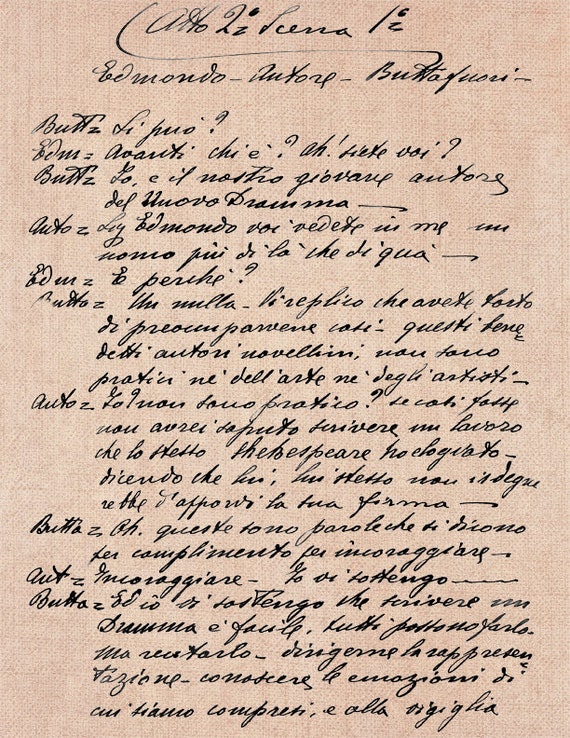 Atto 2º Scena 1ª
Edmondo - Autore - Buttafuori -
Butt= Si può?
Edm= Avanti chi è? Ah! siete voi?
Butt= Io, e il nostro giovane autore
del Nuovo Dramma —
Auto= Sig Edmondo voi vedete in me un
uomo più di là che di quà —
Edm= E perché?
Butta= Un nulla - Vi replico che avete torto
di preocuparvene così - questi bene=
detti autori novellini, non sono
pratici né dell'arte né degli artisti -
Auto= Io? non sono pratico? se così fosse
non avrei saputo scrivere un lavoro
che lo stesso Shekespeare ha elogiato -
dicendo che lui, lui stesso non isdegne
rebbe d'apporvi la sua firma —
Butta= Oh. queste sono parole che si dicono
per complimento per incoraggiare -
Aut= Incoraggiare - Io vi sostengo —
Butta= Ed io vi sostengo che scrivere un
Dramma e facile, tutti possono farlo -
ma recitarlo - dirigerne la rappresen=
tazione - conoscere le emozioni di
cui siamo compresi, e alla vigiglia